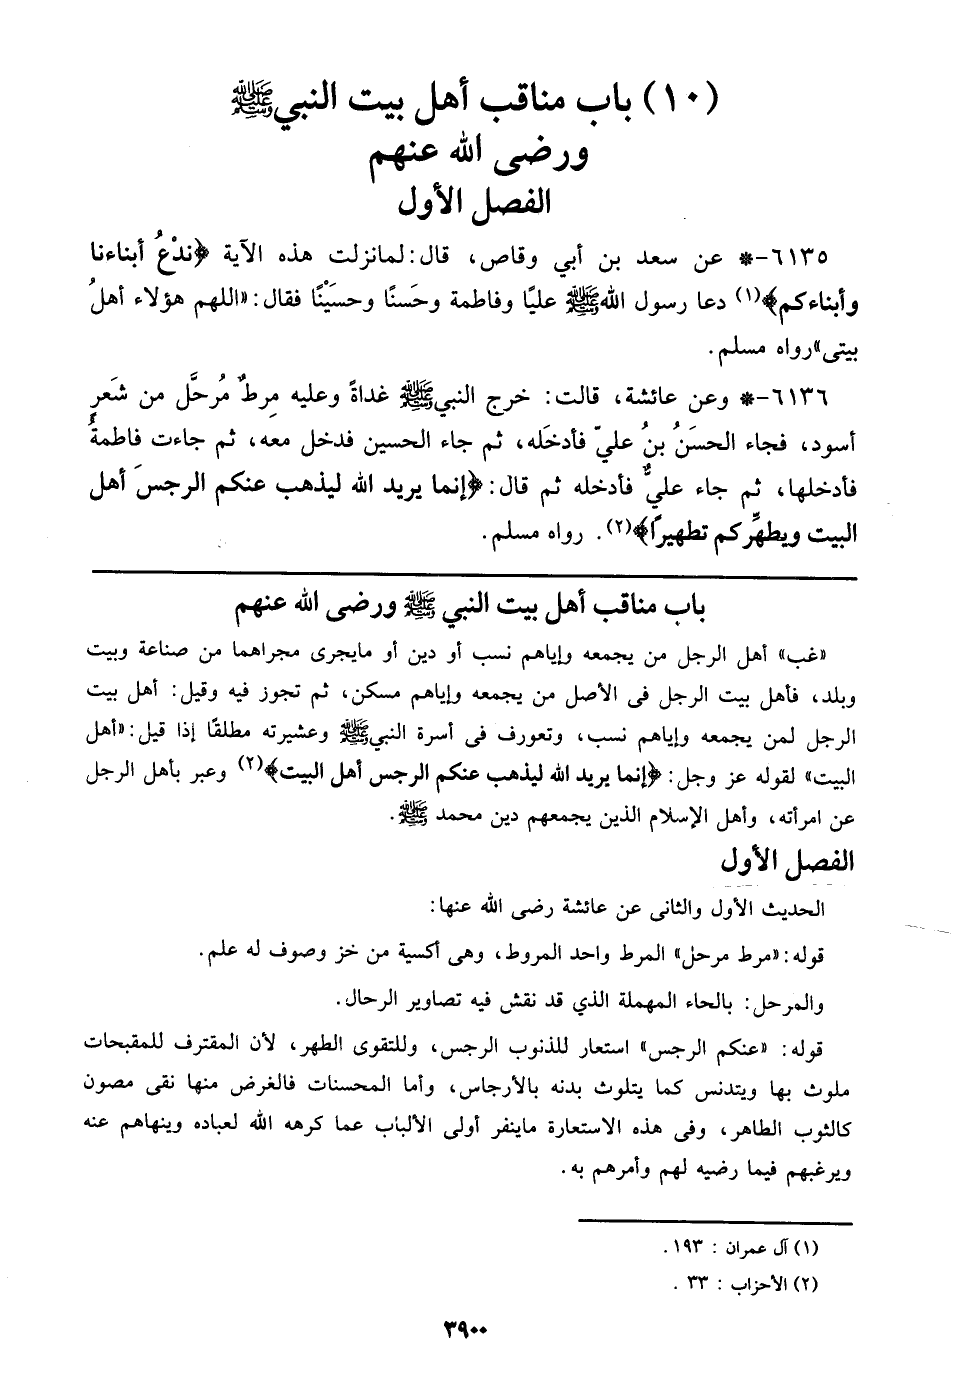 (١٠) باب مناقب أهل بيت النبي ﷺ
ورضى الله عنهم
الفصل الأول
٦١٣٥-* عن سعد بن أبي وقاص، قال: لمانزلت هذه الآية ﴿ندْعُ أبناءنا
وأبناءكم﴾(١) دعا رسول الله ﷺ عليًا وفاطمة وحَسنًا وحسَيْنًا فقال: «اللهم هؤلاء أهلُ
بيتى» رواه مسلم.
٦١٣٦-* وعن عائشة، قالت: خرج النبي ﷺ غداةً وعليه مِرطٌ مُرحَّل من شَعرٍ
أسود، فجاء الحسَنُ بنُ عليّ فأدخَله، ثم جاء الحسين فدخل معه، ثم جاءت فاطمةُ
فأدخلها، ثم جاء عليٌّ فأدخله ثم قال: ﴿إنما يريد الله ليذهب عنكم الرجسَ أهل
البيت ويطهِّركم تطهيرًا﴾(٢). رواه مسلم.
باب مناقب أهل بيت النبي ﷺ ورضى الله عنهم
«غب» أهل الرجل من يجمعه وإياهم نسب أو دين أو مايجرى مجراهما من صناعة وبيت
وبلد، فأهل بيت الرجل فى الأصل من يجمعه وإياهم مسكن، ثم تجوز فيه وقيل: أهل بيت
الرجل لمن يجمعه وإياهم نسب، وتعورف فى أسرة النبي ﷺ وعشيرته مطلقًا إذا قيل: «أهل
البيت» لقوله عز وجل: ﴿إنما يريد الله ليذهب عنكم الرجس أهل البيت﴾(٢) وعبر بأهل الرجل
عن امرأته، وأهل الإسلام الذين يجمعهم دين محمد ﷺ.
الفصل الأول
الحديث الأول والثانى عن عائشة رضى الله عنها:
قوله: «مرط مرحل» المرط واحد المروط، وهى أكسية من خز وصوف له علم.
والمرحل: بالحاء المهملة الذي قد نقش فيه تصاوير الرحال.
قوله: «عنكم الرجس» استعار للذنوب الرجس، وللتقوى الطهر، لأن المقترف للمقبحات
ملوث بها ويتدنس كما يتلوث بدنه بالأرجاس، وأما المحسنات فالغرض منها نقى مصون
كالثوب الطاهر، وفى هذه الاستعارة ماينفر أولى الألباب عما كرهه الله لعباده وينهاهم عنه
ويرغبهم فيما رضيه لهم وأمرهم به.
(١) آل عمران : ١٩٣ .
(٢) الأحزاب : ٣٣ .
٣٩٠٠